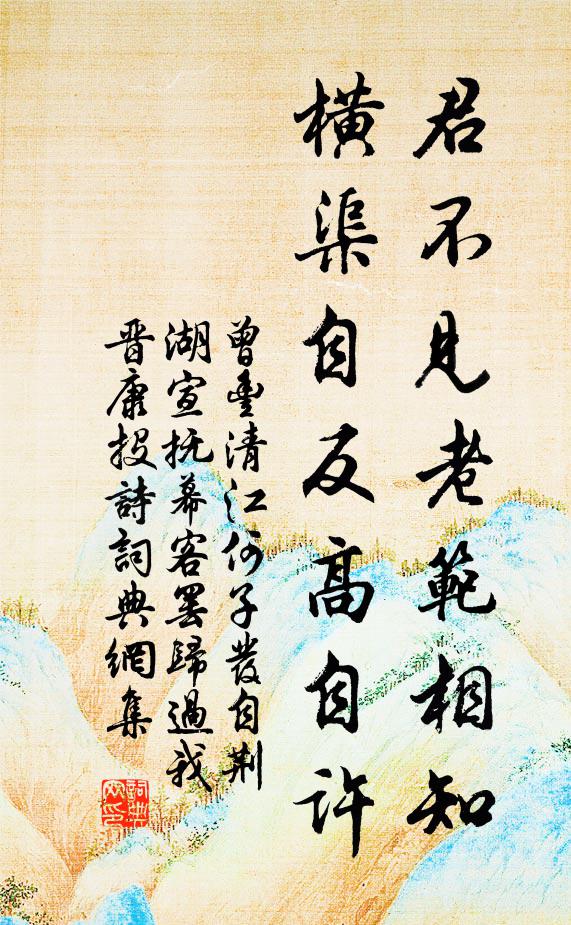 君不見老範相知
橫渠自反高自許
曾豐清江何子發自荆
湖宣抚幕客罢歸過我
晋康投詩詞典網集